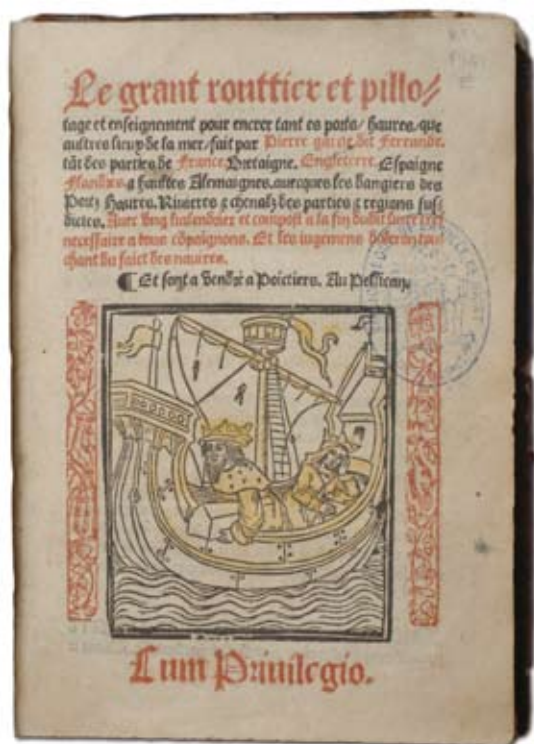 Le grant routtier et pillo/
tage et enseignement pour encrer tant es ports/ haures/ que
aultres lieux de la mer/ fait par Pierre garcie dit Ferrande.
tãt des parties de France Bretaigne. Engleterre. Espaigne
Flandres. & haultes Alemaignes. auecques les dangiers des
Portz Haures. Riuieres & chenalz des parties & regions sus/
dictes. Auec vng kalendrier et compost a la fin dudit liure tres
necessaire a tous cõpaignons. Et les iugemens doleron tou/
chant du faict des nauires.
¶ Et sont a vendre a Poictiers. Au Pellican.
Cum Priuilegio.